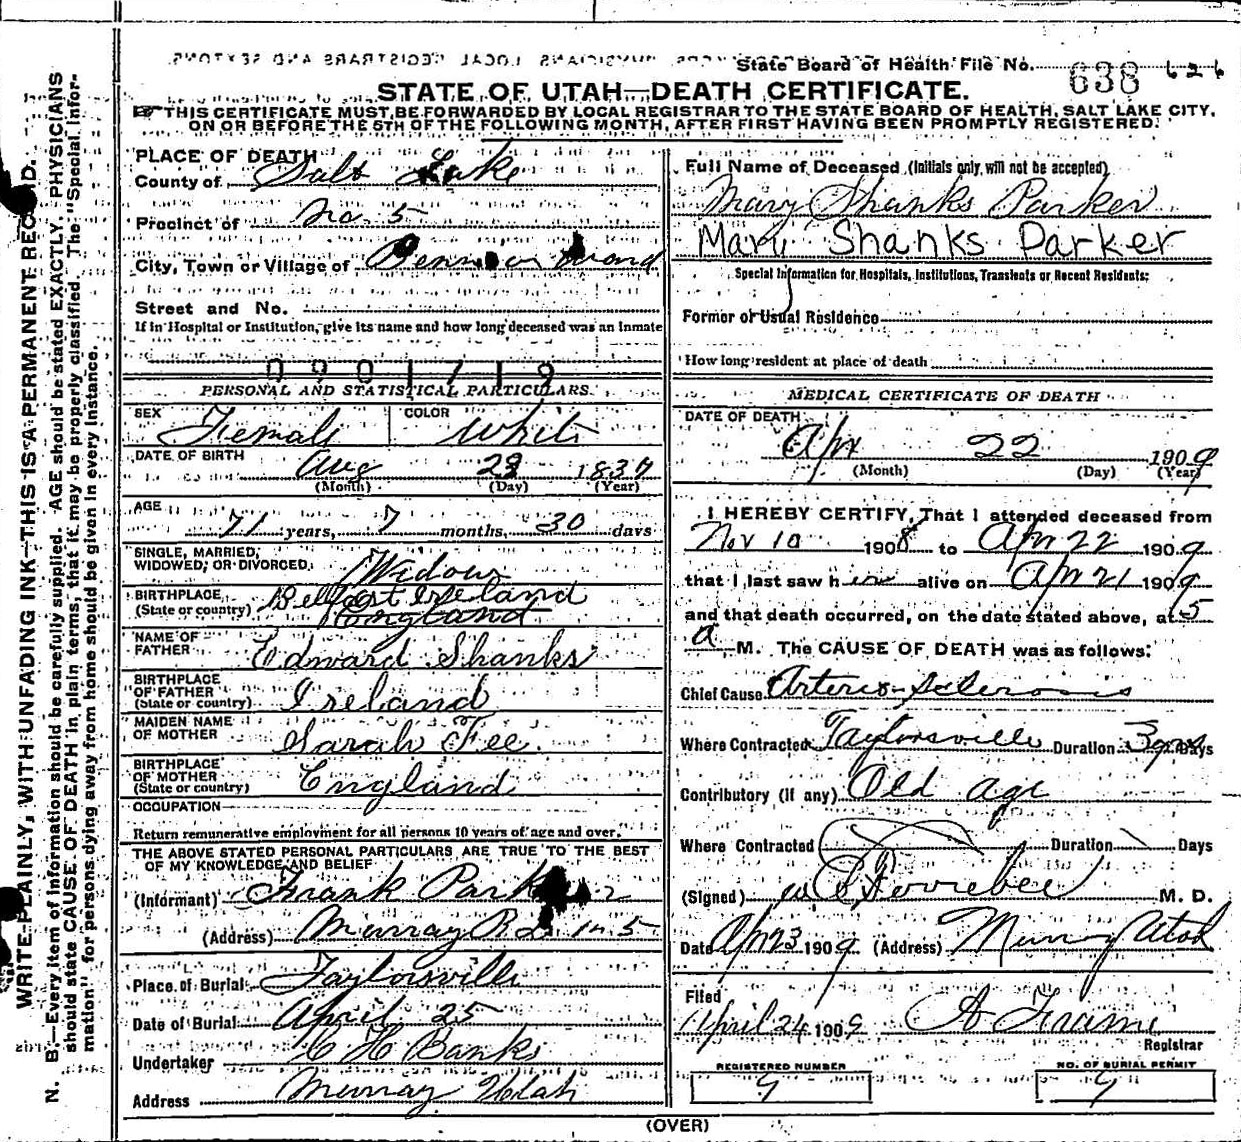 State Board of Health File No. 638 626
STATE OF UTAH—DEATH CERTIFICATE.
THIS CERTIFICATE MUST BE FORWARDED BY LOCAL REGISTRAR TO THE STATE BOARD OF HEALTH, SALT LAKE CITY,
ON OR BEFORE THE 5TH OF THE FOLLOWING MONTH, AFTER FIRST HAVING BEEN PROMPTLY REGISTERED.
WRITE PLAINLY, WITH UNFADING INK—THIS IS A PERMANENT RECORD.
N. B.—Every item of information should be carefully supplied. AGE should be stated EXACTLY. PHYSICIANS
should state CAUSE OF DEATH in plain terms, that it may be properly classified. The "Special Infor-
mation" for persons dying away from home should be given in every instance.
PLACE OF DEATH
County of Salt Lake
Precinct of No. 5
City, Town or Village of
Street and No.
If in Hospital or Institution, give its name and how long deceased was an inmate
0901719
PERSONAL AND STATISTICAL PARTICULARS.
SEX Female COLOR White
DATE OF BIRTH Aug 23 1837
(Month) (Day) (Year)
AGE 71 years, 7 months, 30 days
SINGLE, MARRIED,
WIDOWED, OR DIVORCED, Widow
BIRTHPLACE, Belfast Ireland
(State or country) England
NAME OF
FATHER Edward Shanks
BIRTHPLACE
OF FATHER
(State or country) Ireland
MAIDEN NAME
OF MOTHER Sarah Fee.
BIRTHPLACE
OF MOTHER
(State or country) England
OCCUPATION
Return remunerative employment for all persons 10 years of age and over.
THE ABOVE STATED PERSONAL PARTICULARS ARE TRUE TO THE BEST
OF MY KNOWLEDGE AND BELIEF
(Informant) Frank Parker
(Address) Murray R D No 5
Place of Burial Taylorsville
Date of Burial April 25
Undertaker C H Banks
Address Murray Utah
Full Name of Deceased (Initials only will not be accepted)
Mary Shanks Parker
Mary Shanks Parker
Special Information for Hospitals, Institutions, Transients or Recent Residents:
Former or Usual Residence
How long resident at place of death
MEDICAL CERTIFICATE OF DEATH
DATE OF DEATH
Apr 22 1909
(Month) (Day) (Year)
I HEREBY CERTIFY, That I attended deceased from
Nov 10 1908 to Apr 22 1909
that I last saw her alive on Apr 21 1909
and that death occurred, on the date stated above, at 5
a M. The CAUSE OF DEATH was as follows:
Chief Cause Arterio-Sclerosis
Where Contracted Taylorsville Duration 3 yrs Days
Contributory (if any) Old age
Where Contracted Duration Days
(Signed) M. D.
Date Apr 23 1909 (Address) Murray Utah
Filed
April 24 1909 A Frame
Registrar
REGISTERED NUMBER
9
NO. OF BURIAL PERMIT
9
(OVER)